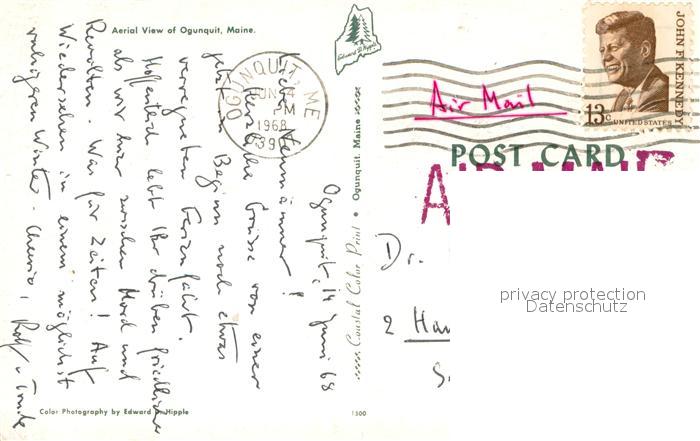 Aerial View of Ogunquit, Maine.
Edward B. Hipple
OGUNQUIT, ME
JUN 14
PM
1968
03907
Air Mail
JOHN F. KENNEDY
13c
UNITED STATES
POST CARD
Ogunquit, 14 Juni 68
Herzliche Grüsse von einer
jetzt im Beginn noch etwas
verregneten Ferienfahrt.
Hoffentlich lebt Ihr drüben friedlicher
als wir hier zwischen Mord und
Revolten. Was für Zeiten! Auf
Wiedersehen in einem möglichst
ruhigeren Winter. Cheerio,
Coastal Color Print • Ogunquit, Maine
Dr.
2 Han
privacy protection
Datenschutz
Color Photography by Edward B. Hipple
1500